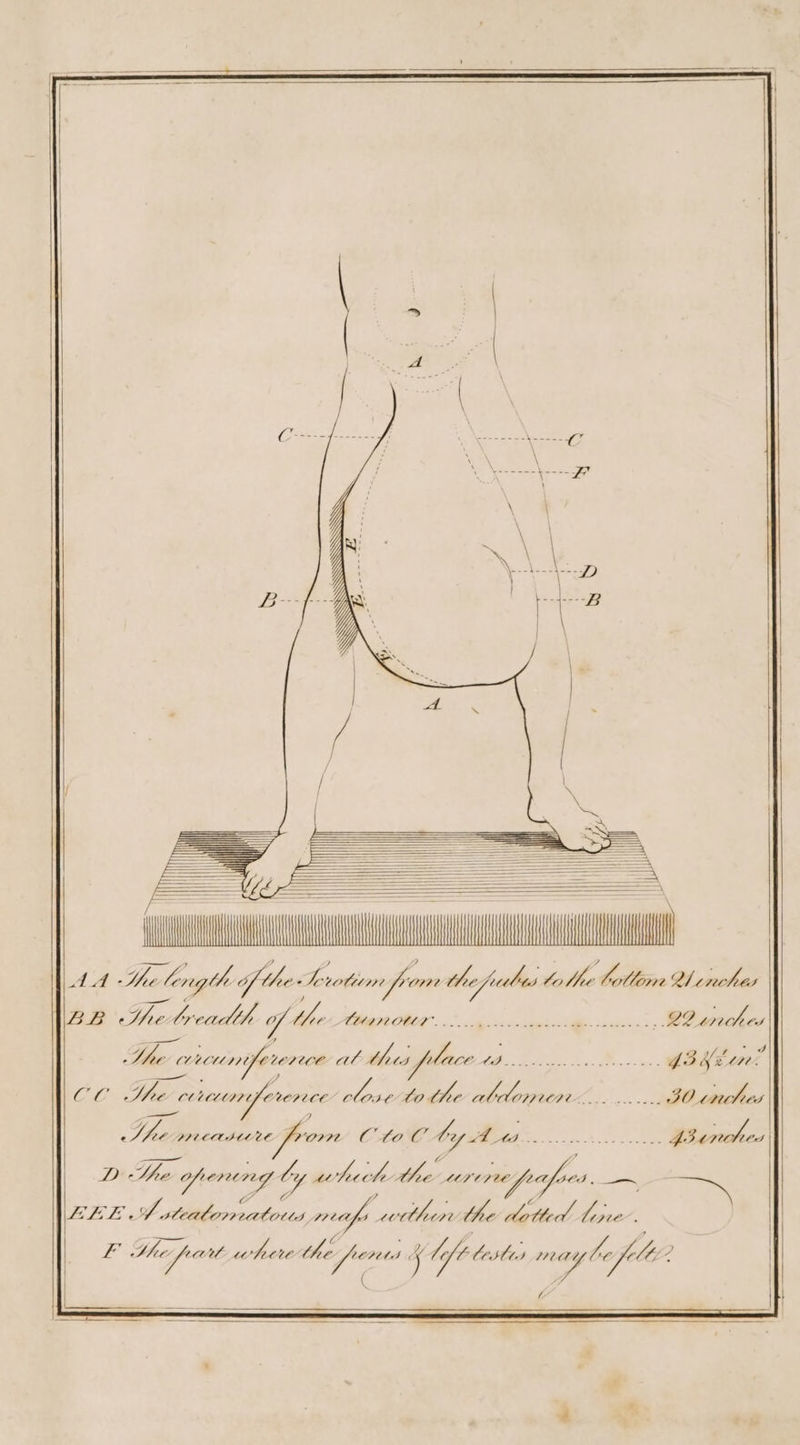 A
C C
F
E
D
B E B
E
A
A A The length of the Scrotum from the pubes to the bottom 21 inches
B B The breadth of the tumour 22 inches
The circumference at this place is 43 & ½ in.s
C C The circumference close to the abdomen 30 inches
The measure from C to C by A is 43 inches
D The opening by which the urine paſses.
E E E A steatomatous maſs within the dotted line.
F The part where the penis & left testis may be felt.